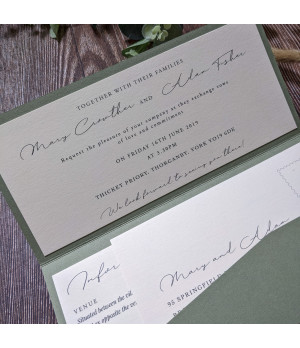 TOGETHER WITH THEIR FAMILIES
Mary Crowther AND Adam Fisher
Request the pleasure of your company as they exchange vows
of love and commitment
ON FRIDAY 14TH JUNE 2019
AT 2.30PM
THICKET PRIORY, THORGANBY, YORK YO19 6DE
We look forward to seeing you there!
Infor
VENUE
Situated between the vil
opposite the
Mary and Adam
95 SPRINGFIELD